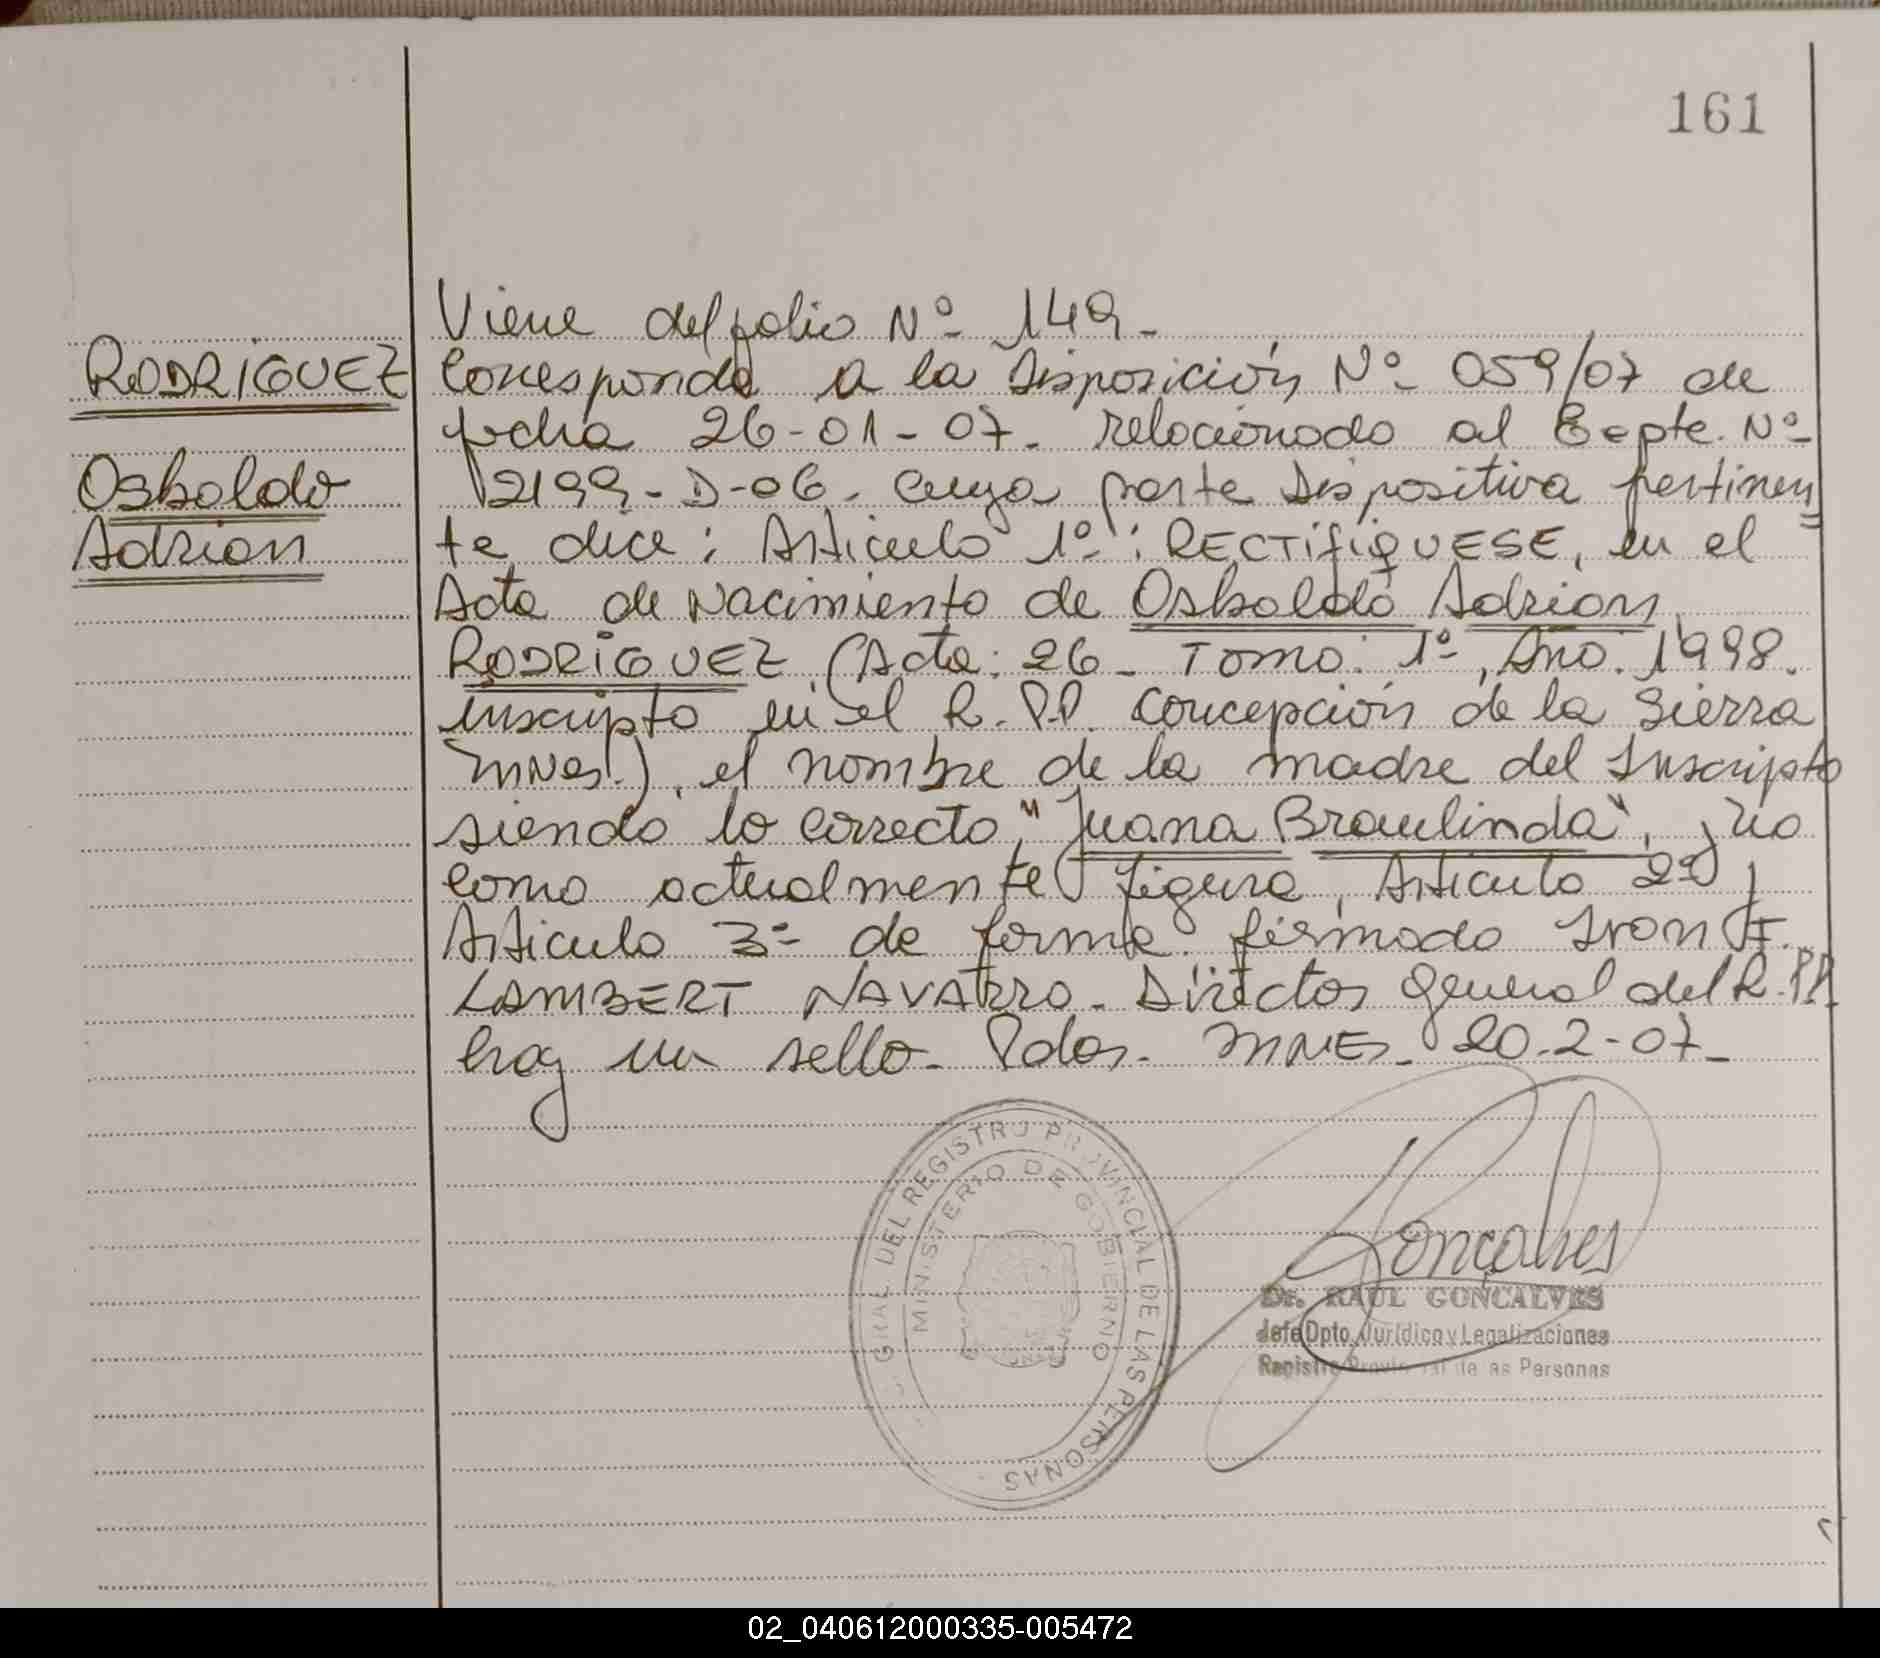 161
Viene del folio Nº 149.
RODRIGUEZ
Osboldo
Adrian
Corresponde a la Disposición Nº 059/07 de
fecha 26-01-07. relacionado al Expte. Nº
2199-D-06. cuya parte Dispositiva pertinen
te dice: Articulo 1º: RECTIFIQUESE, en el
Acta de Nacimiento de Osboldo Adrian
RODRIGUEZ (Acta: 26 - Tomo: 1º, Año: 1998.
inscripto en el R.P.P. Concepción de la Sierra
MNes.), el nombre de la madre del Inscripto
siendo lo correcto "Juana Braulinda", y no
como actualmente figura, Articulo 2º y
Articulo 3º de forma. firmado Ivan F.
LAMBERT NAVARRO. Director General del R.P.P.
hay un sello. Pdas. MNES. 20-2-07-
GRAL DEL REGISTRO PROVINCIAL DE LAS PERSONAS
MINISTERIO DE GOBIERNO
Gonçalves
Dr. RAUL GONCALVES
Jefe Dpto. Jurídico y Legalizaciones
Registro Provincial de las Personas
02_040612000335-005472